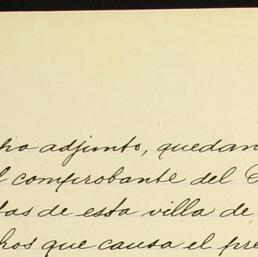 ho adjunto, quedan
l comprobante del C
tas de esta villa de
hos que causa el pre